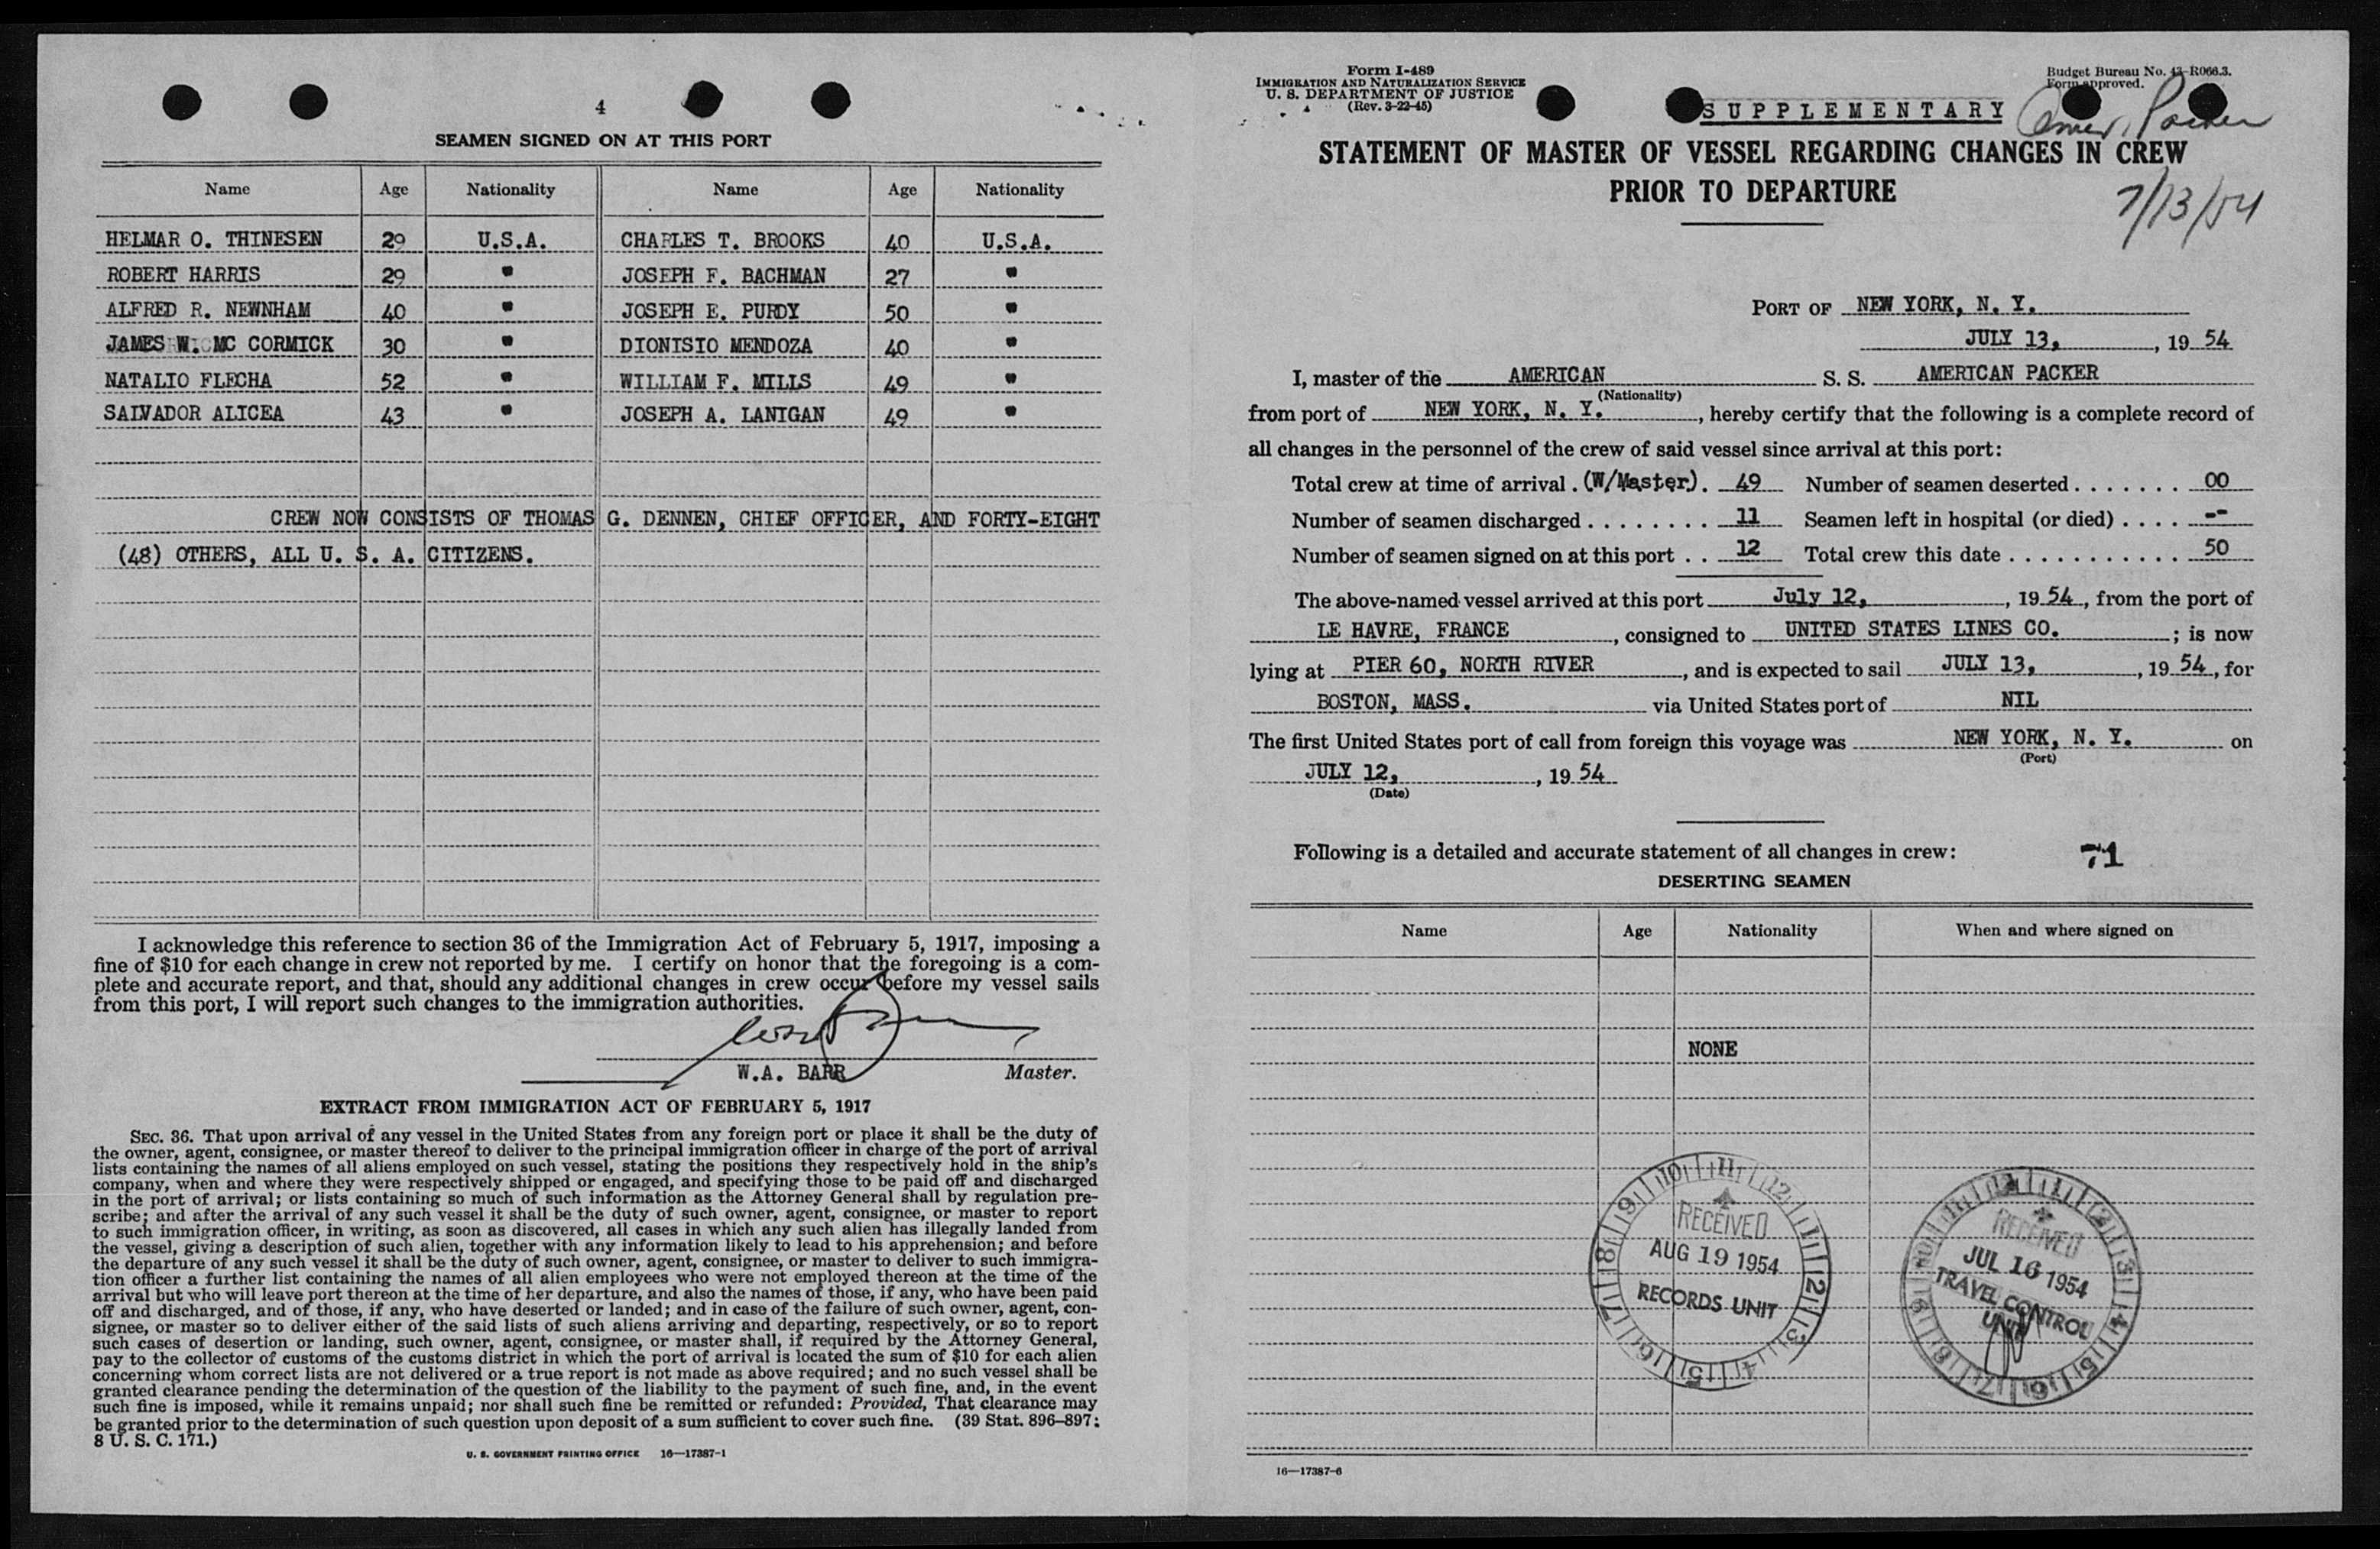 4
SEAMEN SIGNED ON AT THIS PORT
Name Age Nationality Name Age Nationality
HELMAR O. THINESEN 29 U.S.A. CHARLES T. BROOKS 40 U.S.A.
ROBERT HARRIS 29 " JOSEPH F. BACHMAN 27 "
ALFRED R. NEWNHAM 40 " JOSEPH E. PURDY 50 "
JAMES W. MC CORMICK 30 " DIONISIO MENDOZA 40 "
NATALIO FLECHA 52 " WILLIAM F. MILLS 49 "
SALVADOR ALICEA 43 " JOSEPH A. LANIGAN 49 "
CREW NOW CONSISTS OF THOMAS G. DENNEN, CHIEF OFFICER, AND FORTY-EIGHT
(48) OTHERS, ALL U. S. A. CITIZENS.
I acknowledge this reference to section 36 of the Immigration Act of February 5, 1917, imposing a
fine of $10 for each change in crew not reported by me. I certify on honor that the foregoing is a com-
plete and accurate report, and that, should any additional changes in crew occur before my vessel sails
from this port, I will report such changes to the immigration authorities.
W.A. BARR Master.
EXTRACT FROM IMMIGRATION ACT OF FEBRUARY 5, 1917
SEC. 36. That upon arrival of any vessel in the United States from any foreign port or place it shall be the duty of
the owner, agent, consignee, or master thereof to deliver to the principal immigration officer in charge of the port of arrival
lists containing the names of all aliens employed on such vessel, stating the positions they respectively hold in the ship's
company, when and where they were respectively shipped or engaged, and specifying those to be paid off and discharged
in the port of arrival; or lists containing so much of such information as the Attorney General shall by regulation pre-
scribe; and after the arrival of any such vessel it shall be the duty of such owner, agent, consignee, or master to report
to such immigration officer, in writing, as soon as discovered, all cases in which any such alien has illegally landed from
the vessel, giving a description of such alien, together with any information likely to lead to his apprehension; and before
the departure of any such vessel it shall be the duty of such owner, agent, consignee, or master to deliver to such immigra-
tion officer a further list containing the names of all alien employees who were not employed thereon at the time of the
arrival but who will leave port thereon at the time of her departure, and also the names of those, if any, who have been paid
off and discharged, and of those, if any, who have deserted or landed; and in case of the failure of such owner, agent, con-
signee, or master so to deliver either of the said lists of such aliens arriving and departing, respectively, or so to report
such cases of desertion or landing, such owner, agent, consignee, or master shall, if required by the Attorney General,
pay to the collector of customs of the customs district in which the port of arrival is located the sum of $10 for each alien
concerning whom correct lists are not delivered or a true report is not made as above required; and no such vessel shall be
granted clearance pending the determination of the question of the liability to the payment of such fine, and, in the event
such fine is imposed, while it remains unpaid; nor shall such fine be remitted or refunded: Provided, That clearance may
be granted prior to the determination of such question upon deposit of a sum sufficient to cover such fine. (39 Stat. 896–897;
8 U. S. C. 171.)
U. S. GOVERNMENT PRINTING OFFICE 16—17387-1
Form I-489
IMMIGRATION AND NATURALIZATION SERVICE
U. S. DEPARTMENT OF JUSTICE
(Rev. 3-22-45)
Budget Bureau No. 43-R066.3.
Form approved.
SUPPLEMENTARY
Amer. Packer
STATEMENT OF MASTER OF VESSEL REGARDING CHANGES IN CREW
PRIOR TO DEPARTURE
7/13/54
PORT OF NEW YORK, N. Y.
JULY 13, , 19 54
I, master of the AMERICAN S. S. AMERICAN PACKER
(Nationality)
from port of NEW YORK, N. Y. , hereby certify that the following is a complete record of
all changes in the personnel of the crew of said vessel since arrival at this port:
Total crew at time of arrival . (W/Master) . 49 Number of seamen deserted . . . . . . . 00
Number of seamen discharged . . . . . . . . 11 Seamen left in hospital (or died) . . . . --
Number of seamen signed on at this port . . 12 Total crew this date . . . . . . . . . . . 50
The above-named vessel arrived at this port July 12, , 19 54 , from the port of
LE HAVRE, FRANCE , consigned to UNITED STATES LINES CO. ; is now
lying at PIER 60, NORTH RIVER , and is expected to sail JULY 13, , 19 54 , for
BOSTON, MASS. via United States port of NIL
The first United States port of call from foreign this voyage was NEW YORK, N. Y. on
(Port)
JULY 12, , 19 54
(Date)
Following is a detailed and accurate statement of all changes in crew: 71
DESERTING SEAMEN
Name Age Nationality When and where signed on
NONE
RECEIVED
AUG 19 1954
RECORDS UNIT
RECEIVED
JUL 16 1954
TRAVEL CONTROL
UNIT
16—17387-6